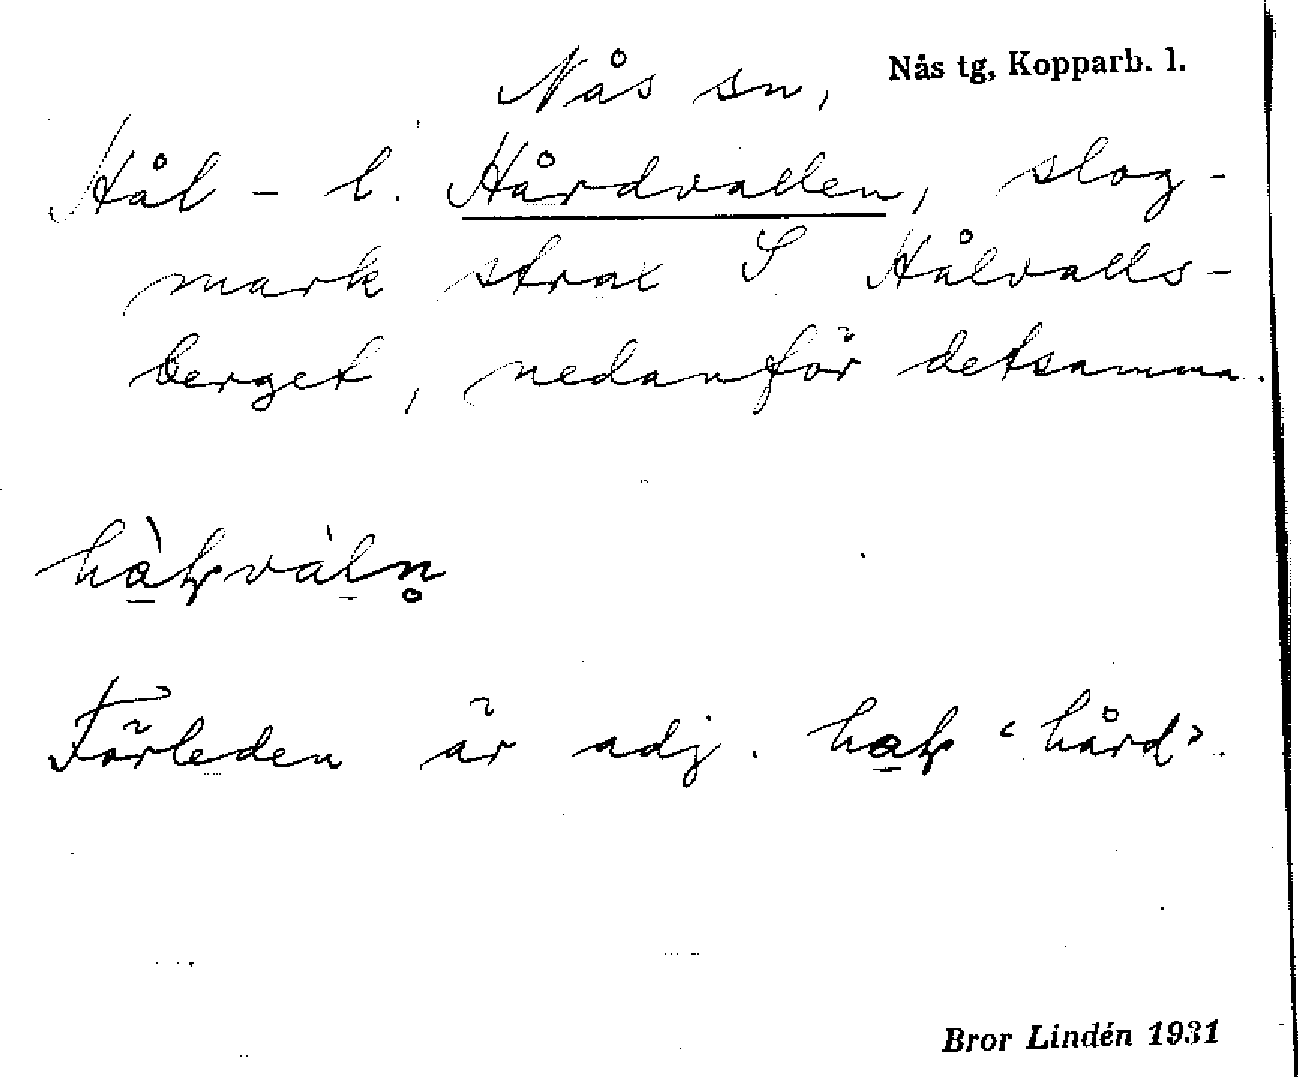 Nås sn, Nås tg, Kopparb. l.
Hål- l. Hårdvallen, slog-
mark strax S Hålvalls-
berget, nedanför detsamma.
Förleden är adj. 'hård'.
Bror Lindén 1931